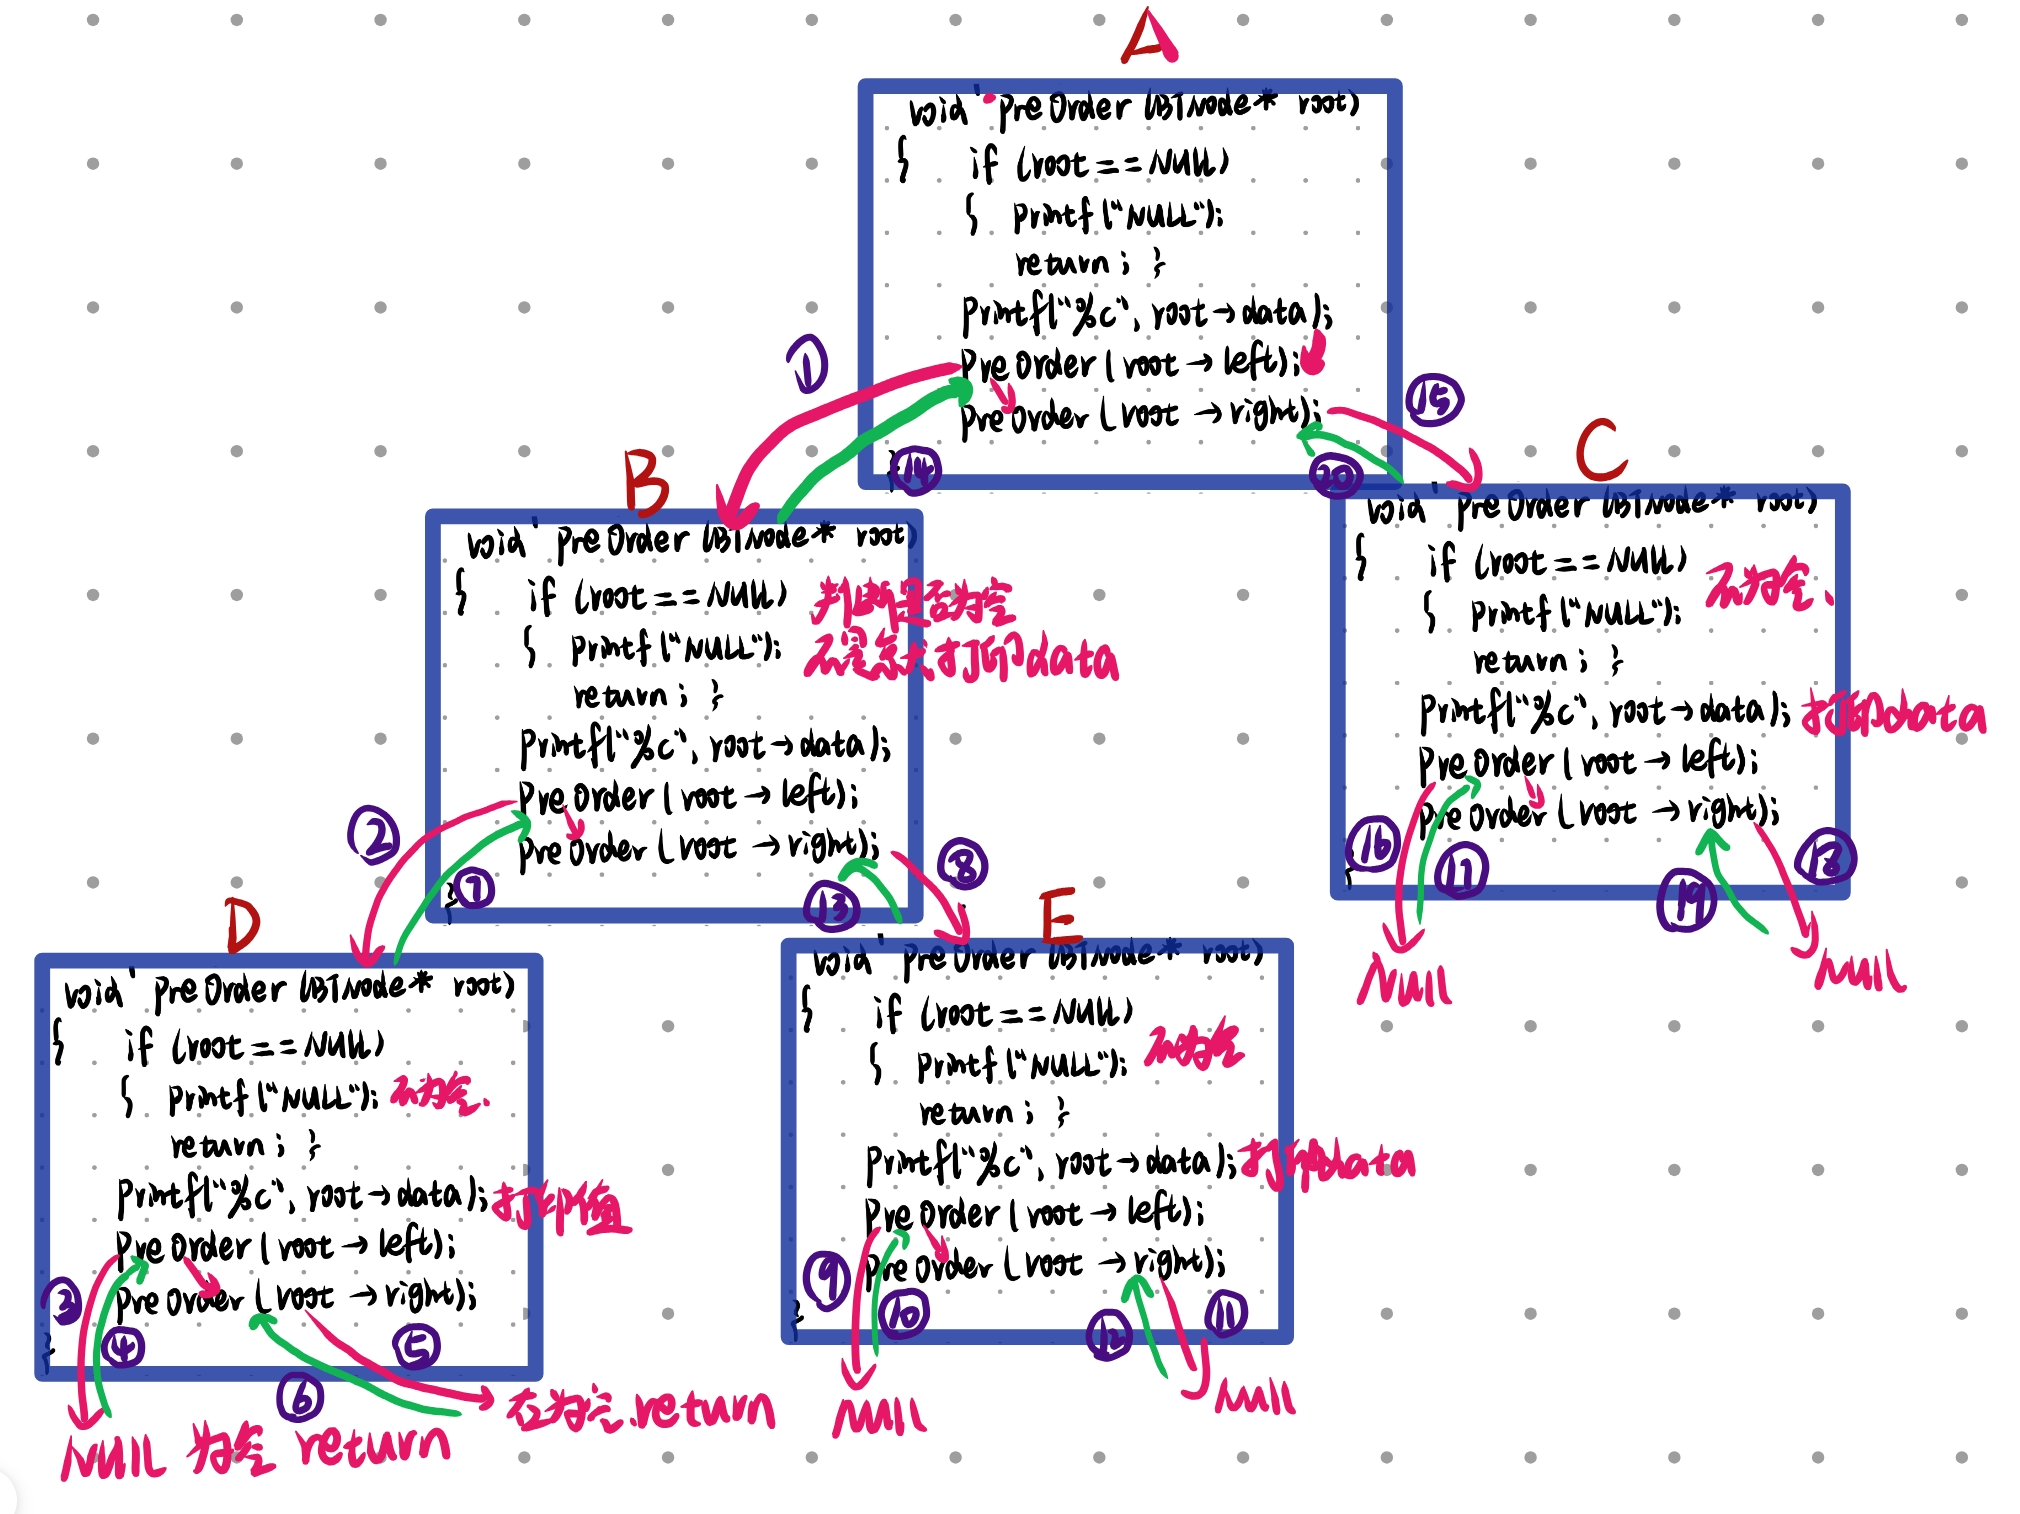 A
void PreOrder (BTNode* root)
{ if (root == NULL)
{ printf("NULL");
return; }
printf("%c", root→data);
PreOrder(root→left);
PreOrder(root→right);
}
①
⑭
⑮
⑳
B
void PreOrder (BTNode* root)
{ if (root == NULL) 判断是否为空
{ printf("NULL"); 不是空就打印data
return; }
printf("%c", root→data);
PreOrder(root→left);
PreOrder(root→right);
}
②
⑦
⑬
⑧
C
void PreOrder (BTNode* root)
{ if (root == NULL) 不为空.
{ printf("NULL");
return; }
printf("%c", root→data); 打印data
PreOrder(root→left);
PreOrder(root→right);
}
⑯
⑰
⑲
⑱
NULL
NULL
D
void PreOrder (BTNode* root)
{ if (root == NULL)
{ printf("NULL"); 不为空.
return; }
printf("%c", root→data); 打印值
PreOrder(root→left);
PreOrder(root→right);
}
③
④
⑥
⑤
NULL 为空 return
在为空.return
E
void PreOrder (BTNode* root)
{ if (root == NULL)
{ printf("NULL"); 不为空
return; }
printf("%c", root→data); 打印data
PreOrder(root→left);
PreOrder(root→right);
}
⑨
⑩
⑫
⑪
NULL
NULL